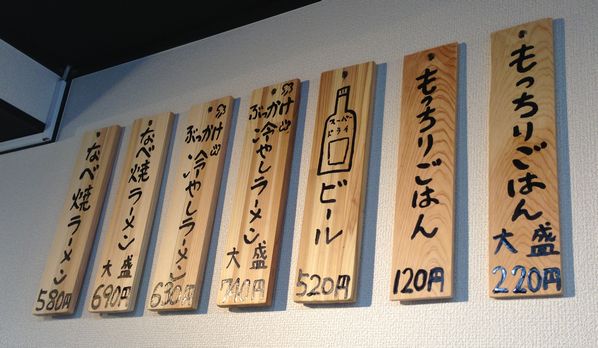 もっちりごはん
大盛
220円
もっちりごはん
120円
スーパー
ドライ
ビール
520円
ぶっかけ
冷やしラーメン
大盛
740円
ぶっかけ
冷やしラーメン
630円
なべ焼ラーメン
大盛
690円
なべ焼ラーメン
580円